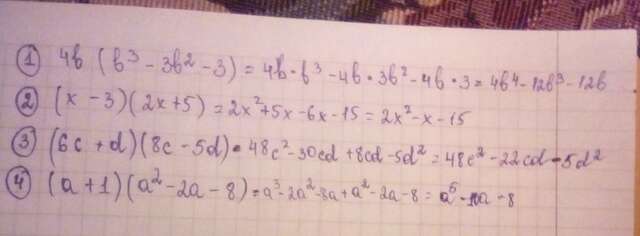 ① 4b (b³ - 3b² - 3) = 4b · b³ - 4b · 3b² - 4b · 3 = 4b⁴ - 12b³ - 12b
② (x - 3)(2x + 5) = 2x² + 5x - 6x - 15 = 2x² - x - 15
③ (6c + d)(8c - 5d) = 48c² - 30cd + 8cd - 5d² = 48c² - 22cd - 5d²
④ (a + 1)(a² - 2a - 8) = a³ - 2a² - 8a + a² - 2a - 8 =